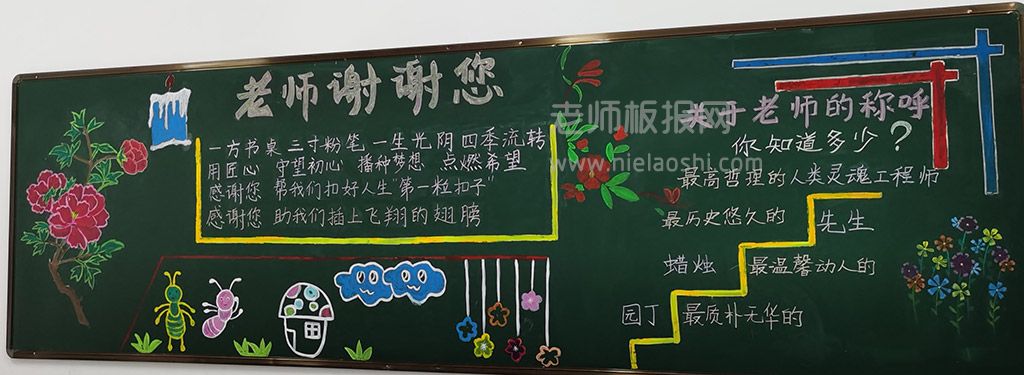 老师谢谢您
一方书桌 三寸粉笔 一生光阴 四季流转
用匠心 守望初心 播种梦想 点燃希望
感谢您 帮我们扣好人生"第一粒扣子"
感谢您 助我们插上飞翔的翅膀
老师板报网
www.nielaoshi.com
关于老师的称呼
你知道多少?
最高哲理的人类灵魂工程师
最历史悠久的 先生
蜡烛 最温馨动人的
园丁 最质朴无华的